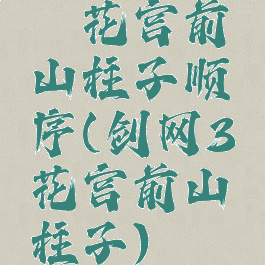 花宫前
山柱子顺
序(剑网3
花宫前山
柱子)